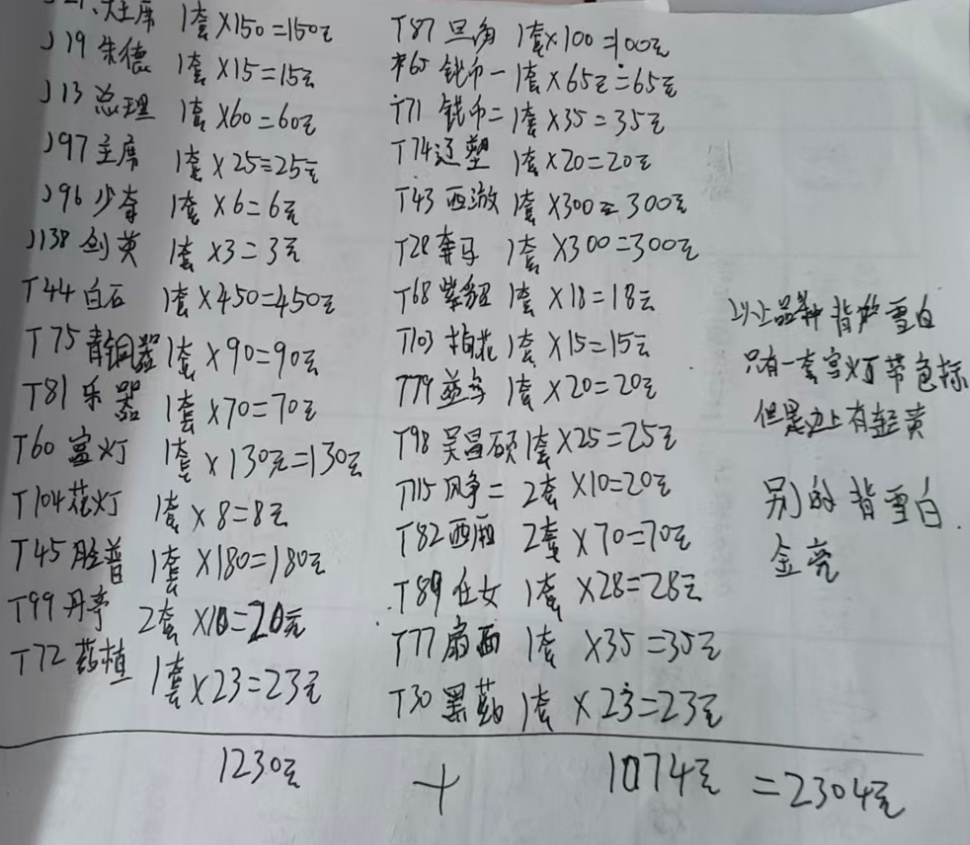 J21、大主席 1套×150=150元
J19 朱德 1套×15=15元
J13 总理 1套×60=60元
J97 主席 1套×25=25元
J96 少奇 1套×6=6元
J138 剑英 1套×3=3元
T44 白石 1套×450=450元
T75 青铜器 1套×90=90元
T81 乐器 1套×70=70元
T60 宫灯 1套×130元=130元
T104 花灯 1套×8=8元
T45 脸普 1套×180=180元
T99 丹亭 2套×10=20元
T72 药植 1套×23=23元
1230元
T87 旦角 1套×100=100元
65 钱币一 1套×65元=65元
T71 钱币二 1套×35=35元
T74 辽塑 1套×20=20元
T43 西游 1套×300=300元
T28 奔马 1套×300=300元
T68 紫貂 1套×18=18元
T103 梅花 1套×15=15元
T79 益鸟 1套×20=20元
T98 吴昌硕 1套×25=25元
T115 风争二 2套×10=20元
T82 西厢 2套×70=70元
T89 仕女 1套×28=28元
T77 扇面 1套×35=35元
T30 黑药 1套×23=23元
+ 1074元 =2304元
以上品种背胶雪白
只有一套宫灯带色标
但是边上有轻黄
别的背雪白.
金亮